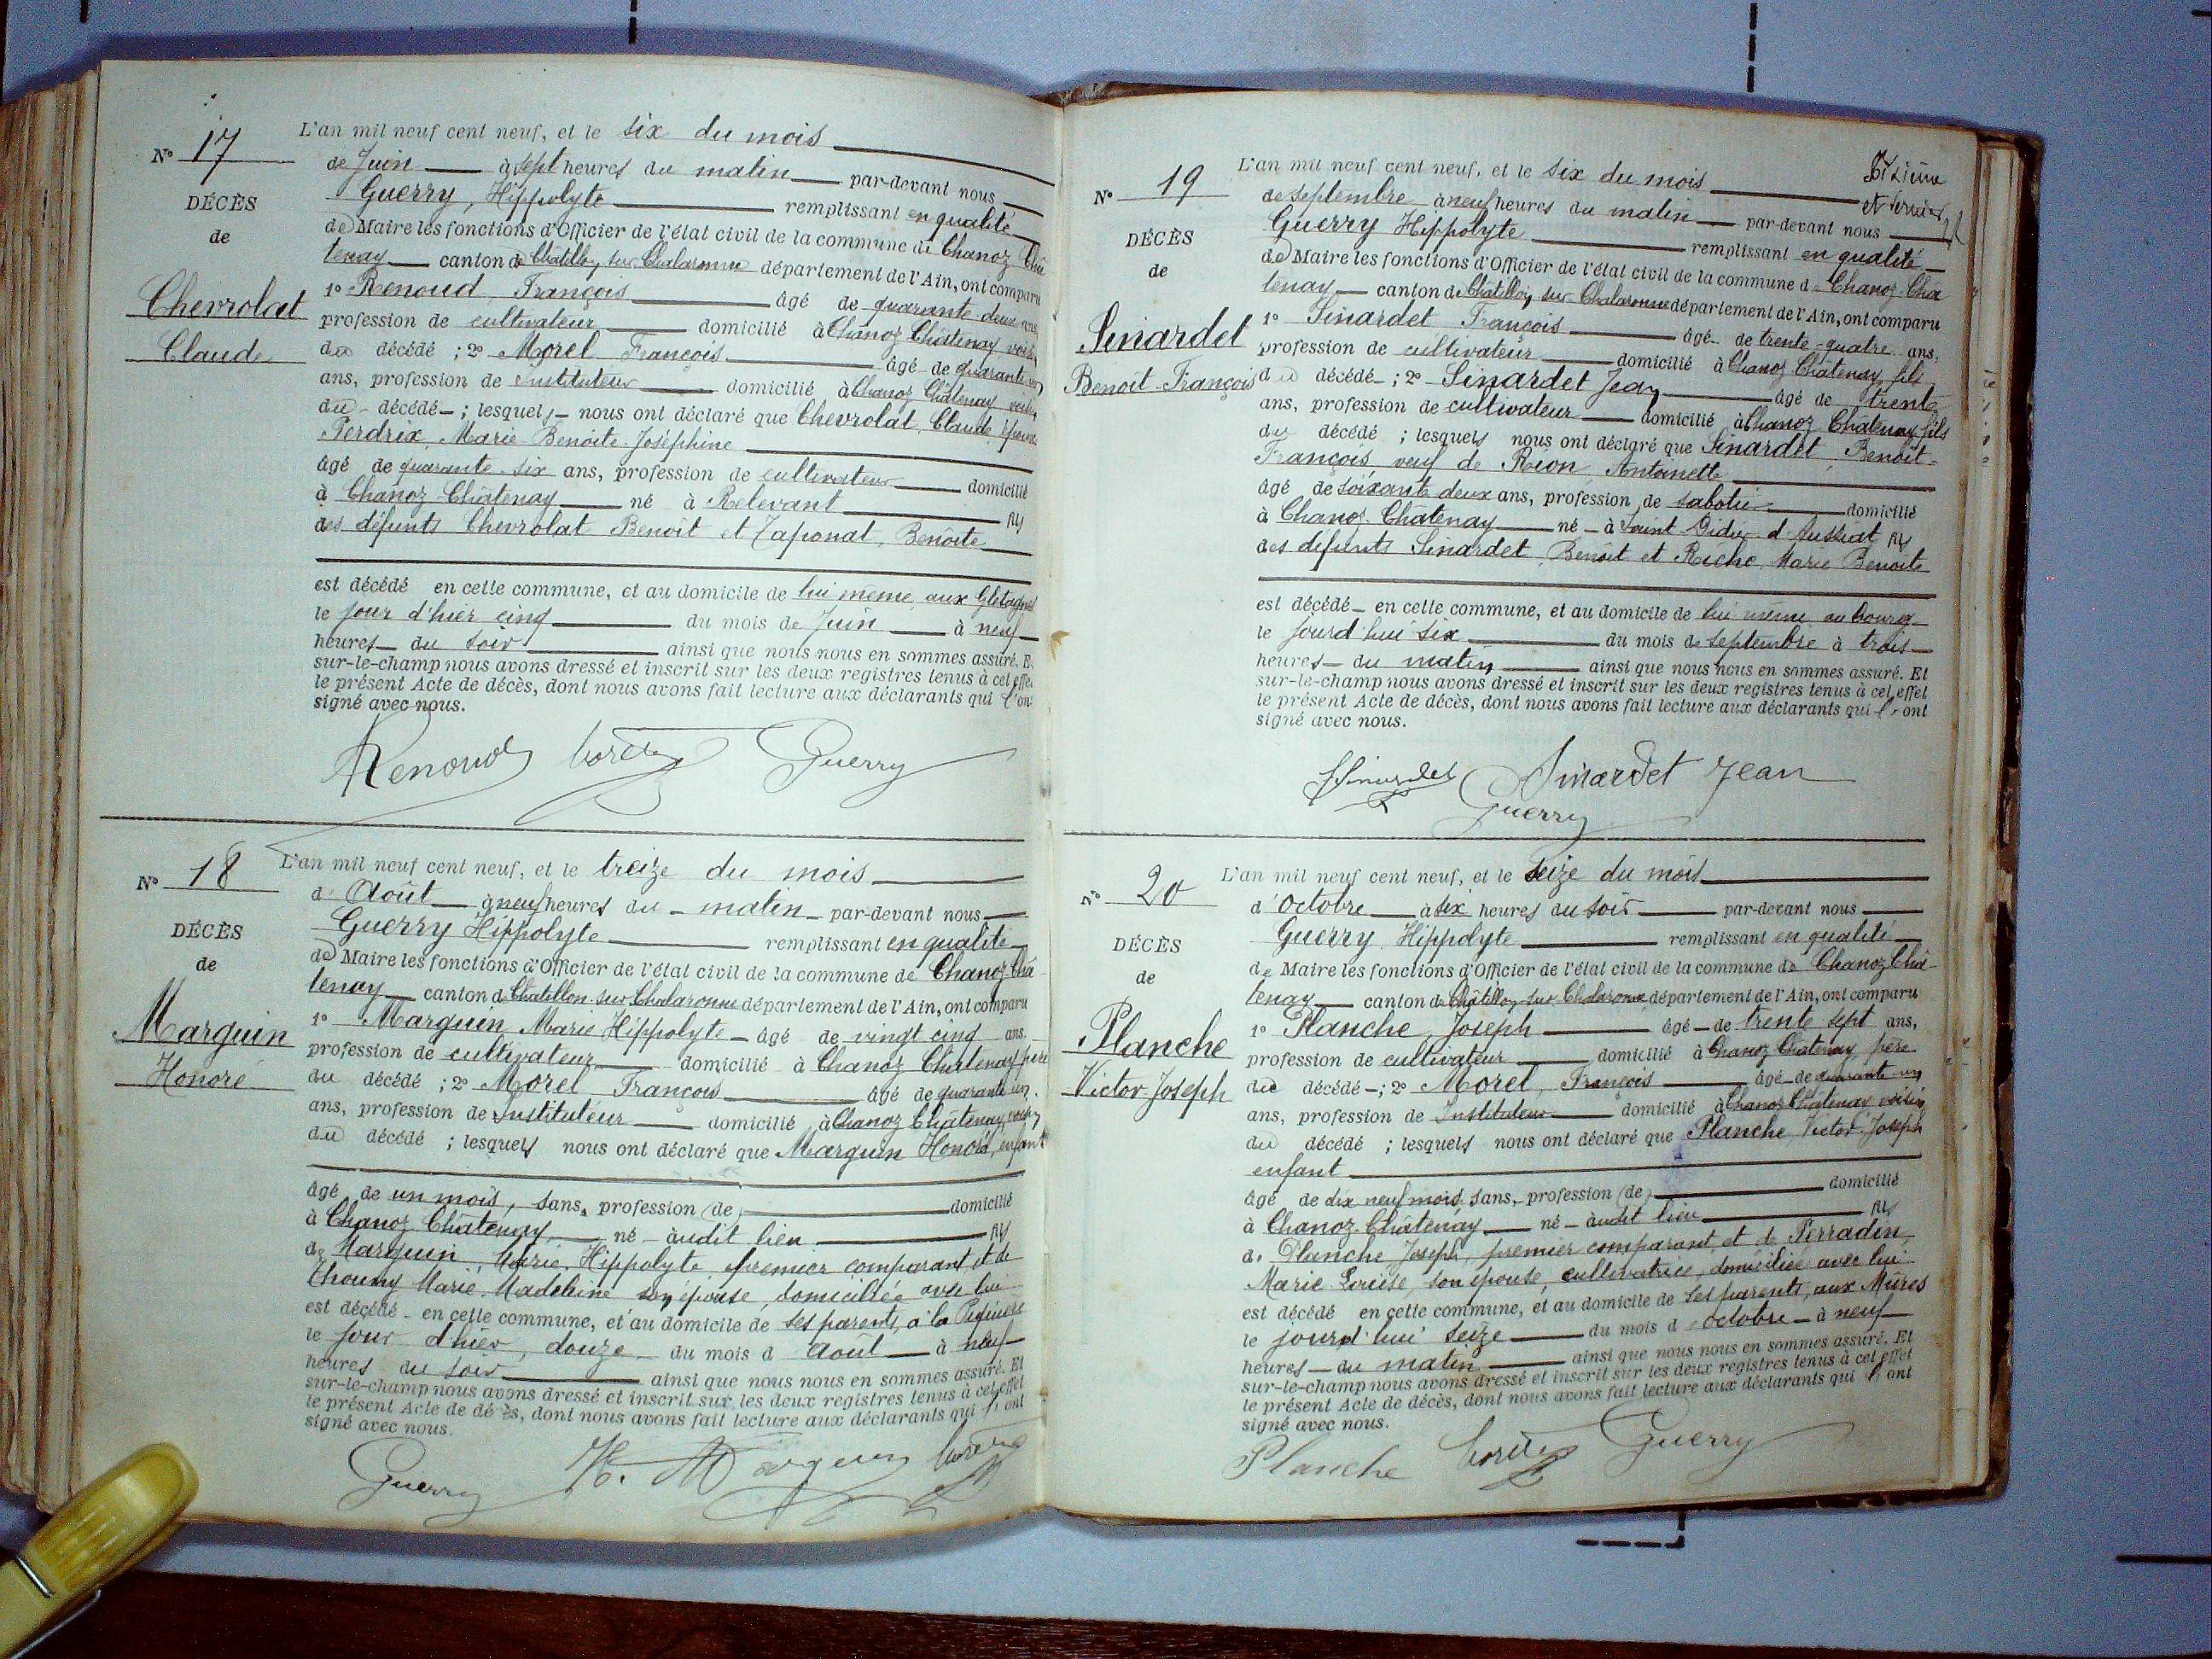 N° 17
DÉCÈS
de
Chevrolat
Claude
L'an mil neuf cent neuf, et le six du mois
de Juin à sept heures du matin par-devant nous
Guerry, Hippolyte remplissant en qualité
de Maire les fonctions d'Officier de l'état civil de la commune de Chanoz Châ
tenay canton de Châtillon sur Chalaronne département de l'Ain, ont comparu
1° Renoud, François âgé de quarante-deux ans
profession de cultivateur domicilié à Chanoz Châtenay voisin
du décédé ; 2° Morel François âgé de quarante un
ans, profession de instituteur domicilié à Chanoz Châtenay voisin
du décédé ; lesquels nous ont déclaré que Chevrolat, Claude, époux
Perdrix, Marie Benoite Joséphine
âgé de quarante-six ans, profession de cultivateur domicilié
à Chanoz-Châtenay né à Relevant fils
des défunts Chevrolat Benoît et Taponat, Benoîte
est décédé en cette commune, et au domicile de lui même, aux
le jour d'hier cinq du mois de Juin à neuf
heures du soir ainsi que nous nous en sommes assuré. Et
sur-le-champ nous avons dressé et inscrit sur les deux registres tenus à cet effet
le présent Acte de décès, dont nous avons fait lecture aux déclarants qui l'ont
signé avec nous.
Renoud Morel Guerry
N° 18
DÉCÈS
de
Marguin
Honoré
L'an mil neuf cent neuf, et le treize du mois
d'Août à neuf heures du matin par-devant nous
Guerry Hippolyte remplissant en qualité
de Maire les fonctions d'Officier de l'état civil de la commune de Chanoz-Châ
tenay canton de Châtillon-sur-Chalaronne département de l'Ain, ont comparu
1° Marguin Marie Hippolyte âgé de vingt cinq ans.
profession de cultivateur domicilié à Chanoz Châtenay père
du décédé ; 2° Morel François âgé de quarante un
ans, profession de Instituteur domicilié à Chanoz Châtenay, voisin
du décédé ; lesquels nous ont déclaré que Marguin Honoré, enfant
âgé de un mois, sans profession de domicilié
à Chanoz Châtenay né audit lieu fils
de Marguin, Marie Hippolyte premier comparant et de
Marie Madeleine son épouse, domiciliée avec lui
est décédé en cette commune, et au domicile de ses parents, à la
le jour d'hier, douze du mois d Août à neuf
heures du soir ainsi que nous nous en sommes assuré. Et
sur-le-champ nous avons dressé et inscrit sur les deux registres tenus à cet effet
le présent Acte de décès, dont nous avons fait lecture aux déclarants qui l'ont
signé avec nous.
Guerry H. Marguin Morel
N° 19
DÉCÈS
de
Sinardet
Benoit-François
et dernier
L'an mil neuf cent neuf, et le six du mois
de septembre à neuf heures du matin par-devant nous
Guerry Hippolyte remplissant en qualité
de Maire les fonctions d'Officier de l'état civil de la commune de Chanoz-Châ
tenay canton de Châtillon sur Chalaronne département de l'Ain, ont comparu
1° Sinardet François âgé de trente-quatre ans,
profession de cultivateur domicilié à Chanoz Châtenay, fils
du décédé ; 2° Sinardet Jean âgé de trente
ans, profession de cultivateur domicilié à Chanoz Châtenay fils
du décédé ; lesquels nous ont déclaré que Sinardet, Benoît-
François, veuf de Rion Antoinette
âgé de soixante deux ans, profession de sabotier domicilié
à Chanoz Châtenay né à Saint Didier d'Aussiat fils
des défunts Sinardet, Benoit et Riche, Marie Benoite
est décédé en cette commune, et au domicile de lui même au bourg
le jourd'hui six du mois de septembre à trois
heures du matin ainsi que nous nous en sommes assuré. Et
sur-le-champ nous avons dressé et inscrit sur les deux registres tenus à cet effet
le présent Acte de décès, dont nous avons fait lecture aux déclarants qui l'ont
signé avec nous.
Sinardet Sinardet Jean
Guerry
N° 20
DÉCÈS
de
Planche
Victor-Joseph
L'an mil neuf cent neuf, et le seize du mois
d'Octobre à six heures du soir par-devant nous
Guerry, Hippolyte remplissant en qualité
de Maire les fonctions d'Officier de l'état civil de la commune de Chanoz Châ-
tenay canton de Châtillon sur Chalaronne département de l'Ain, ont comparu
1° Planche, Joseph âgé de trente sept ans,
profession de cultivateur domicilié à Chanoz Châtenay, père
du décédé ; 2° Morel, François âgé de quarante-un
ans, profession de Instituteur domicilié à Chanoz Châtenay voisin
du décédé ; lesquels nous ont déclaré que Planche Victor Joseph
enfant
âgé de dix neuf mois, sans profession de domicilié
à Chanoz-Châtenay né audit lieu fils
de Planche Joseph, premier comparant, et de Perradin,
Marie Louise, son épouse, cultivatrice, domiciliée avec lui
est décédé en cette commune, et au domicile de ses parents, aux Mûres
le jourd'hui seize du mois d octobre à neuf
heures du matin ainsi que nous nous en sommes assuré. Et
sur-le-champ nous avons dressé et inscrit sur les deux registres tenus à cet effet
le présent Acte de décès, dont nous avons fait lecture aux déclarants qui l'ont
signé avec nous.
Planche Morel Guerry